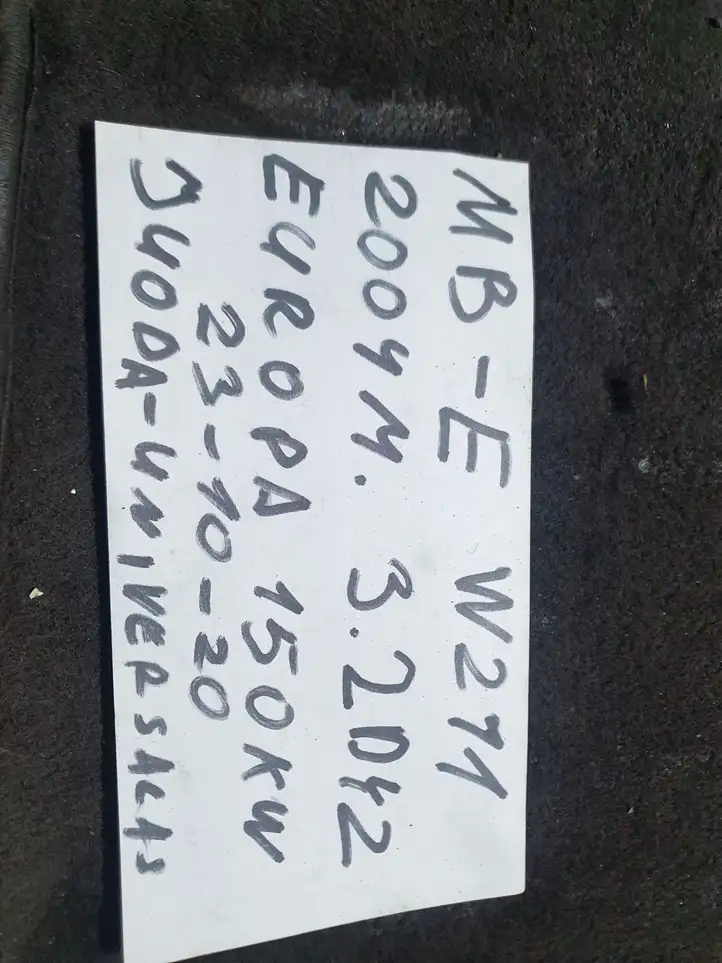 MB-E W211
2004M. 3.2DYZ
EUROPA 150KW
23-10-20
JUODA-UNIVERSALAS